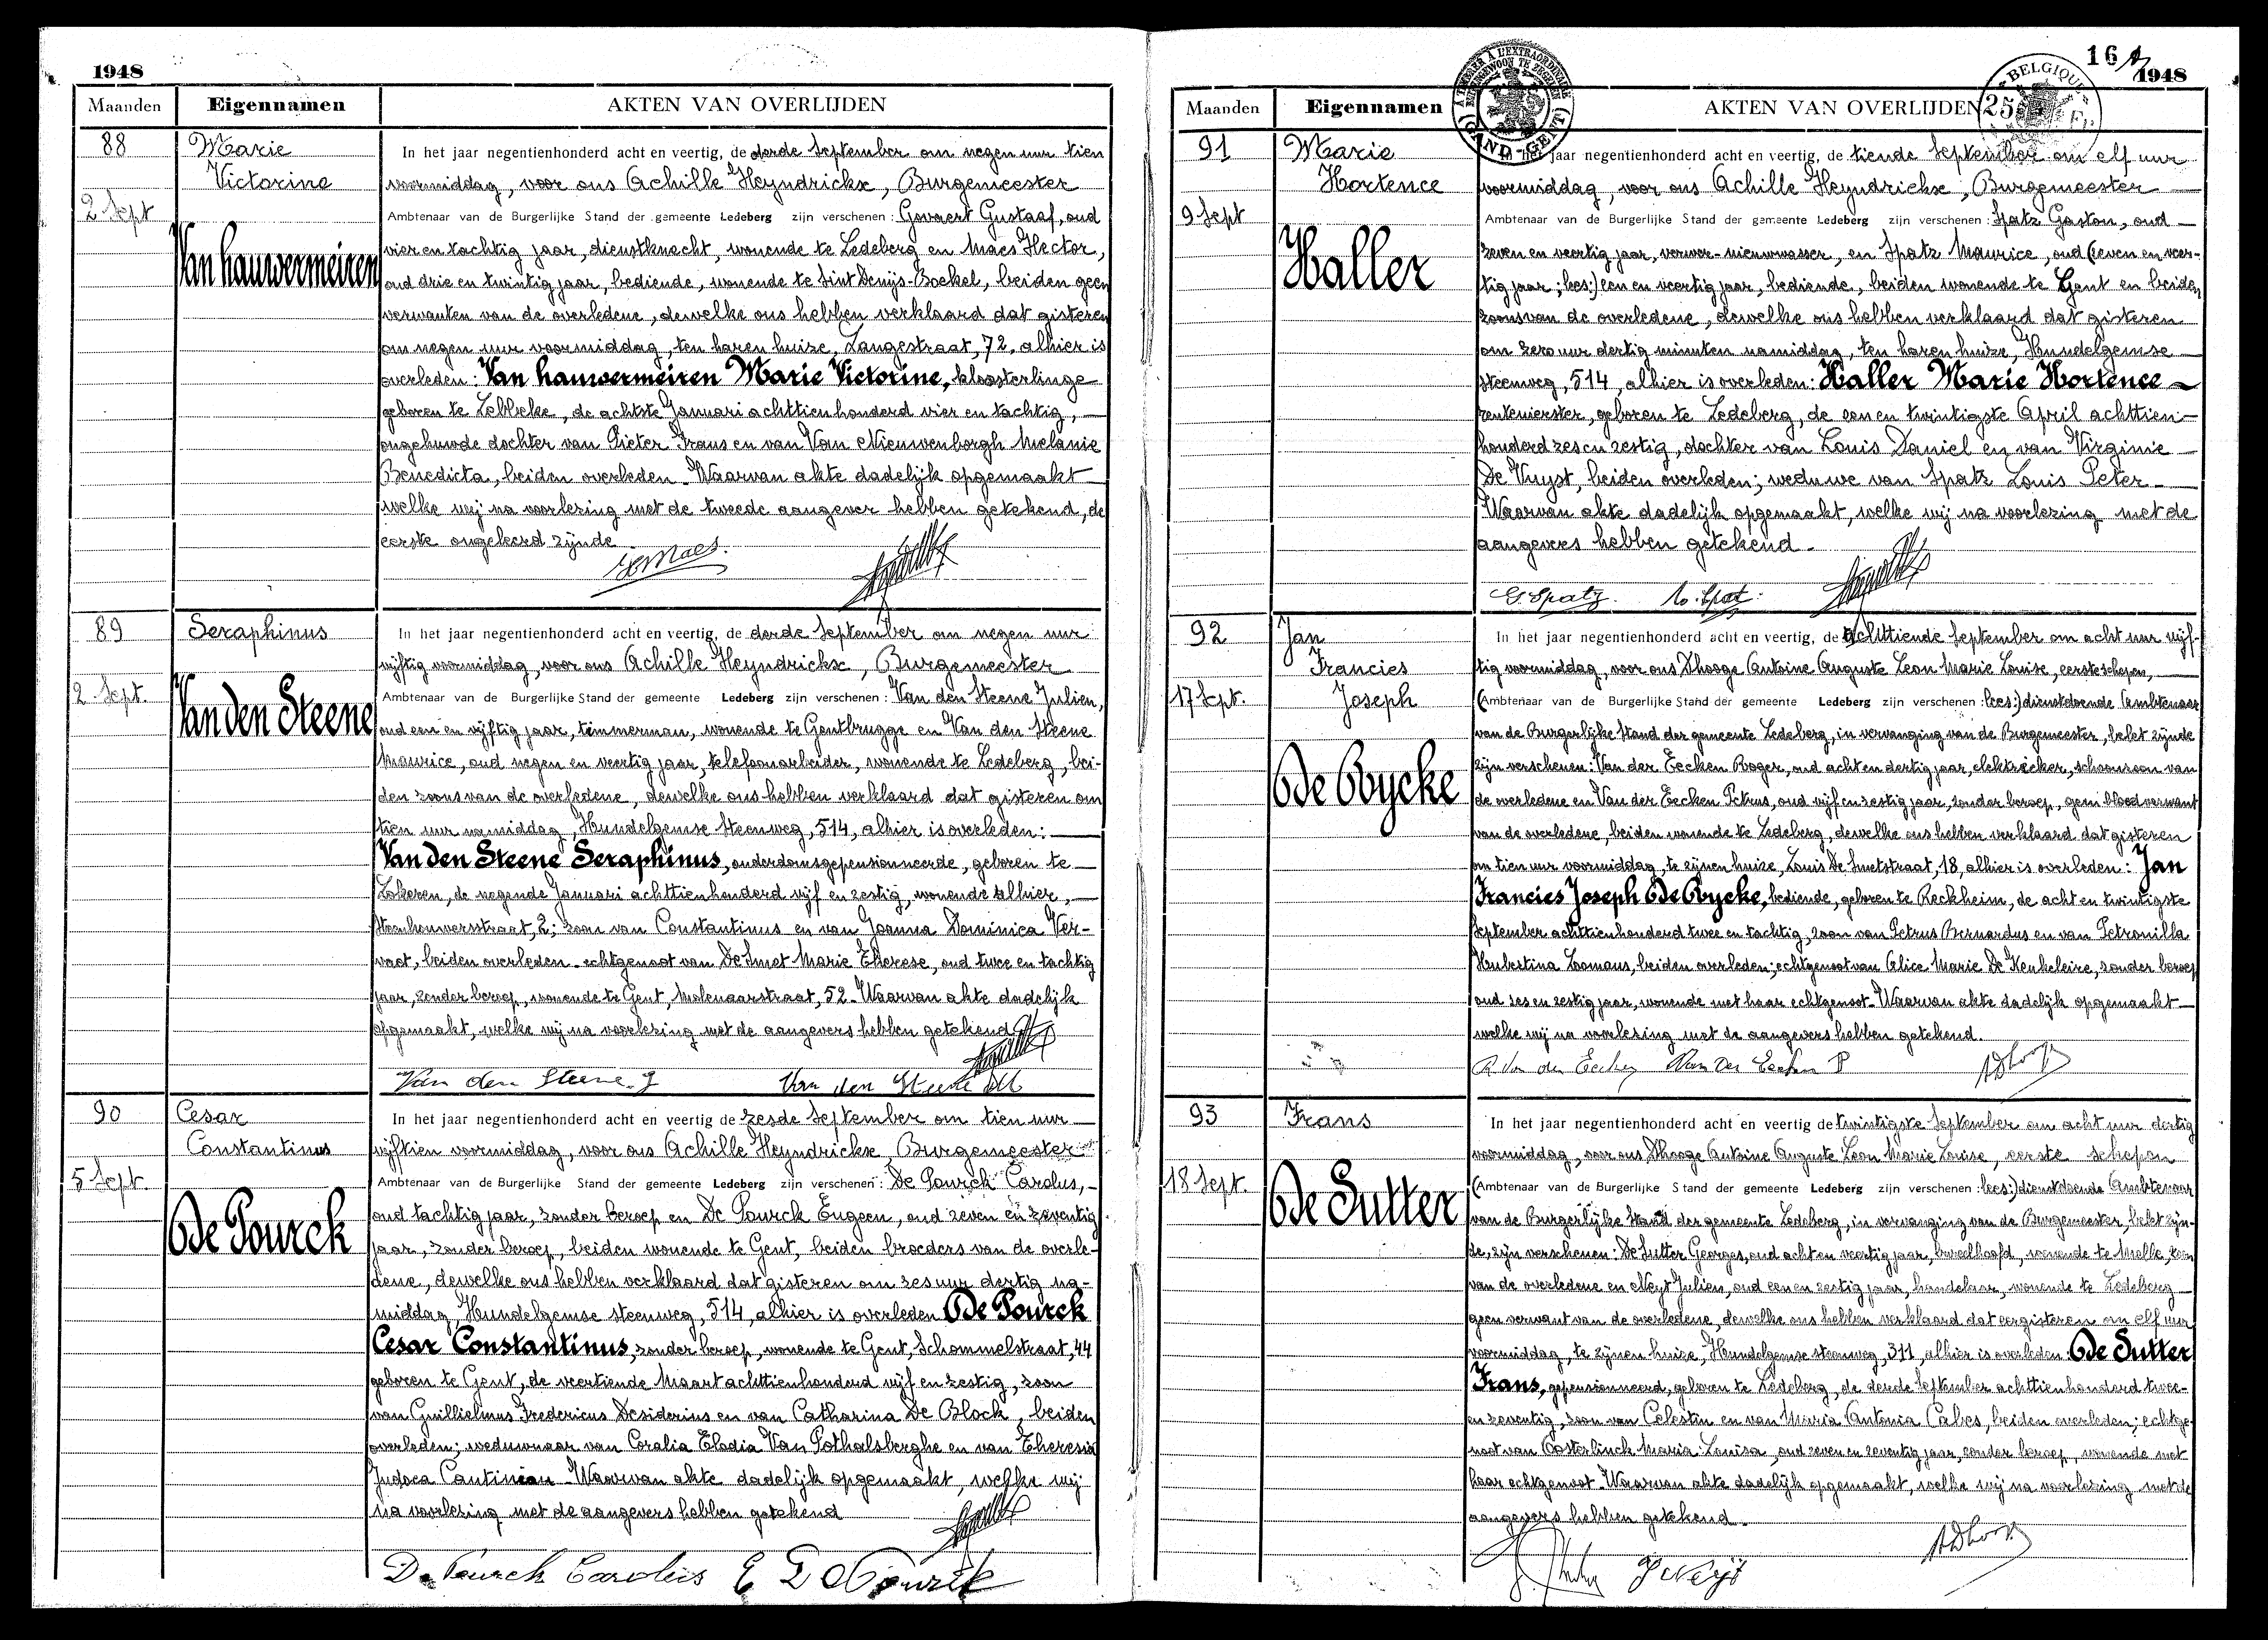 1948
Maanden Eigennamen AKTEN VAN OVERLIJDEN
88
Marie
Victorine
2 Sept
Van hauwermeiren
In het jaar negentienhonderd acht en veertig, de derde September om negen uur tien
voormiddag, voor ons Achille Heyndrickx, Burgemeester
Ambtenaar van de Burgerlijke Stand der gemeente Ledeberg zijn verschenen: Govaert Gustaaf, oud
vier en tachtig jaar, dienstknecht, wonende te Ledeberg en Maes Hector,
oud drie en twintig jaar, bediende, wonende te Sint Denijs-Boekel, beiden geen
verwanten van de overledene, dewelke ons hebben verklaard dat gisteren
om negen uur voormiddag, ten haren huize, Langestraat, 72, alhier is
overleden: Van hauwermeiren Marie Victorine, kloosterlinge
geboren te Lebbeke, de achtste Januari achttienhonderd vier en tachtig,
ongehuwde dochter van Pieter Frans en van Van Nieuwenborgh Melanie
Benedicta, beiden overleden. Waarvan akte dadelijk opgemaakt
welke wij na voorlezing met de tweede aangever hebben getekend, de
eerste ongeleerd zijnde
H. Maes.
89
Seraphinus
2 Sept.
Van den Steene
In het jaar negentienhonderd acht en veertig, de derde September om negen uur
vijftig voormiddag, voor ons Achille Heyndrickx, Burgemeester
Ambtenaar van de Burgerlijke Stand der gemeente Ledeberg zijn verschenen: Van den Steene Julien,
oud een en vijftig jaar, timmerman, wonende te Gentbrugge en Van den Steene
Maurice, oud negen en veertig jaar, telefoonarbeider, wonende te Ledeberg, bei-
den zoons van de overledene, dewelke ons hebben verklaard dat gisteren om
tien uur voormiddag, Hundelgemse Steenweg, 514, alhier is overleden:
Van den Steene Seraphinus, ouderdomsgepensionneerde, geboren te
Lokeren, de negende Januari achttienhonderd vijf en zestig, wonende alhier,
Steenhouwersstraat, 2; zoon van Constantinus en van Joanna Dominica Ver-
vaet, beiden overleden. echtgenoot van De Smet Marie Therese, oud twee en tachtig
jaar, zonder beroep, wonende te Gent, Molenaarstraat, 52. Waarvan akte dadelijk
opgemaakt, welke wij na voorlezing met de aangevers hebben getekend
Van den Steene J Van den Steene M
90
Cesar
Constantinus
5 Sept.
De Pourck
In het jaar negentienhonderd acht en veertig de zesde September om tien uur
vijftien voormiddag, voor ons Achille Heyndrickx, Burgemeester
Ambtenaar van de Burgerlijke Stand der gemeente Ledeberg zijn verschenen: De Pourck Carolus,
oud tachtig jaar, zonder beroep en De Pourck Eugeen, oud zeven en zeventig
jaar, zonder beroep, beiden wonende te Gent, beiden broeders van de overle-
dene, dewelke ons hebben verklaard dat gisteren om zes uur dertig na-
middag, Hundelgemse steenweg, 514, alhier is overleden De Pourck
Cesar Constantinus, zonder beroep, wonende te Gent, Schommelstraat, 44
geboren te Gent, de veertiende Maart achttienhonderd vijf en zestig, zoon
van Guillielmus Fredericus Desiderius en van Catharina De Block, beiden
overleden; weduwnaar van Coralia Elodia Van Pothalsberghe en van Theresia
Judoca Cantinian. Waarvan akte dadelijk opgemaakt, welke wij
na voorlezing met de aangevers hebben getekend
De Pourck Carolus E De Pourck
16
1948
Maanden Eigennamen AKTEN VAN OVERLIJDEN
GAND-GENT
BELGIQUE
25 Fr.
91
Marie
Hortence
9 Sept
Haller
In het jaar negentienhonderd acht en veertig, de tiende September om elf uur
voormiddag, voor ons Achille Heyndrickx, Burgemeester
Ambtenaar van de Burgerlijke Stand der gemeente Ledeberg zijn verschenen: Spatz Gaston, oud
zeven en veertig jaar, verver-nieuwwasser, en Spatz Maurice, oud (zeven en veer-
tig jaar; lees:) een en veertig jaar, bediende, beiden wonende te Gent en beiden
zoons van de overledene, dewelke ons hebben verklaard dat gisteren
om zero uur dertig minuten namiddag, ten haren huize, Hundelgemse
steenweg, 514, alhier is overleden: Haller Marie Hortence
rentenierster, geboren te Ledeberg, de een en twintigste April achttien-
honderd zes en zestig, dochter van Louis Daniel en van Virginie
De Vuyst, beiden overleden; weduwe van Spatz Louis Peter
Waarvan akte dadelijk opgemaakt, welke wij na voorlezing met de
aangevers hebben getekend.
G. Spatz. M. Spatz.
92
Jan
Francies
Joseph
17 Sept.
De Bycke
In het jaar negentienhonderd acht en veertig, de achttiende September om acht uur vijf-
tig voormiddag, voor ons Dhooge Antoine Auguste Leon Marie Louise, eerste schepen,
(Ambtenaar van de Burgerlijke Stand der gemeente Ledeberg zijn verschenen: lees:) dienstdoende Ambtenaar
van de Burgerlijke Stand der gemeente Ledeberg, in vervanging van de Burgemeester, belet zijnde
zijn verschenen: Van der Eecken Roger, oud acht en dertig jaar, elektrieker, schoonzoon van
de overledene en Van der Eecken Petrus, oud vijf en zestig jaar, zonder beroep, geen bloedverwant
van de overledene, beiden wonende te Ledeberg, dewelke ons hebben verklaard dat gisteren
om tien uur voormiddag, te zijnen huize, Louis De Smetstraat, 18, alhier is overleden: Jan
Francies Joseph De Bycke, bediende, geboren te Reckheim, de acht en twintigste
September achttienhonderd twee en tachtig, zoon van Petrus Bernardus en van Petronilla
Hubertina Lomans, beiden overleden; echtgenoot van Alice Marie De Keukeleire, zonder beroep
oud zes en zestig jaar, wonende met haar echtgenoot. Waarvan akte dadelijk opgemaakt
welke wij na voorlezing met de aangevers hebben getekend.
R Van der Eecken Van der Eecken P ADhooge
93
Frans
18 Sept.
De Sutter
In het jaar negentienhonderd acht en veertig de twintigste September om acht uur dertig
voormiddag, voor ons Dhooge Antoine Auguste Leon Marie Louise, eerste schepen
(Ambtenaar van de Burgerlijke Stand der gemeente Ledeberg zijn verschenen: lees:) dienstdoende Ambtenaar
van de Burgerlijke Stand der gemeente Ledeberg, in vervanging van de Burgemeester, belet zijn-
de, zijn verschenen: De Sutter Georges, oud acht en veertig jaar, bureelhoofd, wonende te Melle, zoon
van de overledene en Neyt Julien, oud een en zestig jaar, handelaar, wonende te Ledeberg
geen verwant van de overledene, dewelke ons hebben verklaard dat eergisteren om elf uur
voormiddag, te zijnen huize, Hundelgemse steenweg, 311, alhier is overleden: De Sutter
Frans, gepensionneerd, geboren te Ledeberg, de derde September achttienhonderd twee-
en zeventig, zoon van Celestin en van Maria Antonia Cabes, beiden overleden; echtge-
noot van Oosterlinck Maria Louisa, oud zeven en zeventig jaar, zonder beroep, wonende met
haar echtgenoot. Waarvan akte dadelijk opgemaakt, welke wij na voorlezing met de
aangevers hebben getekend.
J Neyt ADhooge